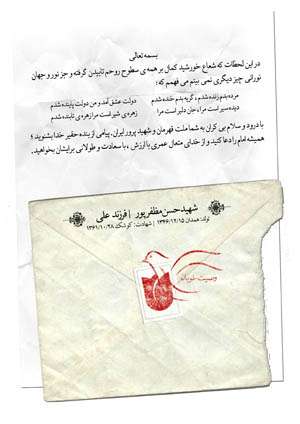 بسمه تعالی
در این لحظات که شعاع خورشید کمال بر همه ی سطوح روحم تابیدن گرفته و جز نور و جهان
نورانی چیز دیگری نمی بینم می فهمم که:
مرده بدم زنده شدم، گریه بدم خنده شدم
دولت عشق آمد و من دولت پاینده شدم
دیده سیر است مرا، جان دلیر است مرا
زهره ی شیر است مرا زهره ی تابنده شدم
با درود و سلام بی کران به شما ملت قهرمان و شهید پرور ایران. پیامی از بنده حقیر خدا بشنوید؛
همیشه امام را دعا کنید و از خدای متعال عمری با ارزش، با سعادت و طولانی برایشان بخواهید.
شهید حسن مظفرپور | فرزند علی
تولد: همدان ۱۳۴۶/۱۲/۱۵ | شهادت: کوشک ۱۳۶۱/۱۰/۲۸
وصیت خوبان